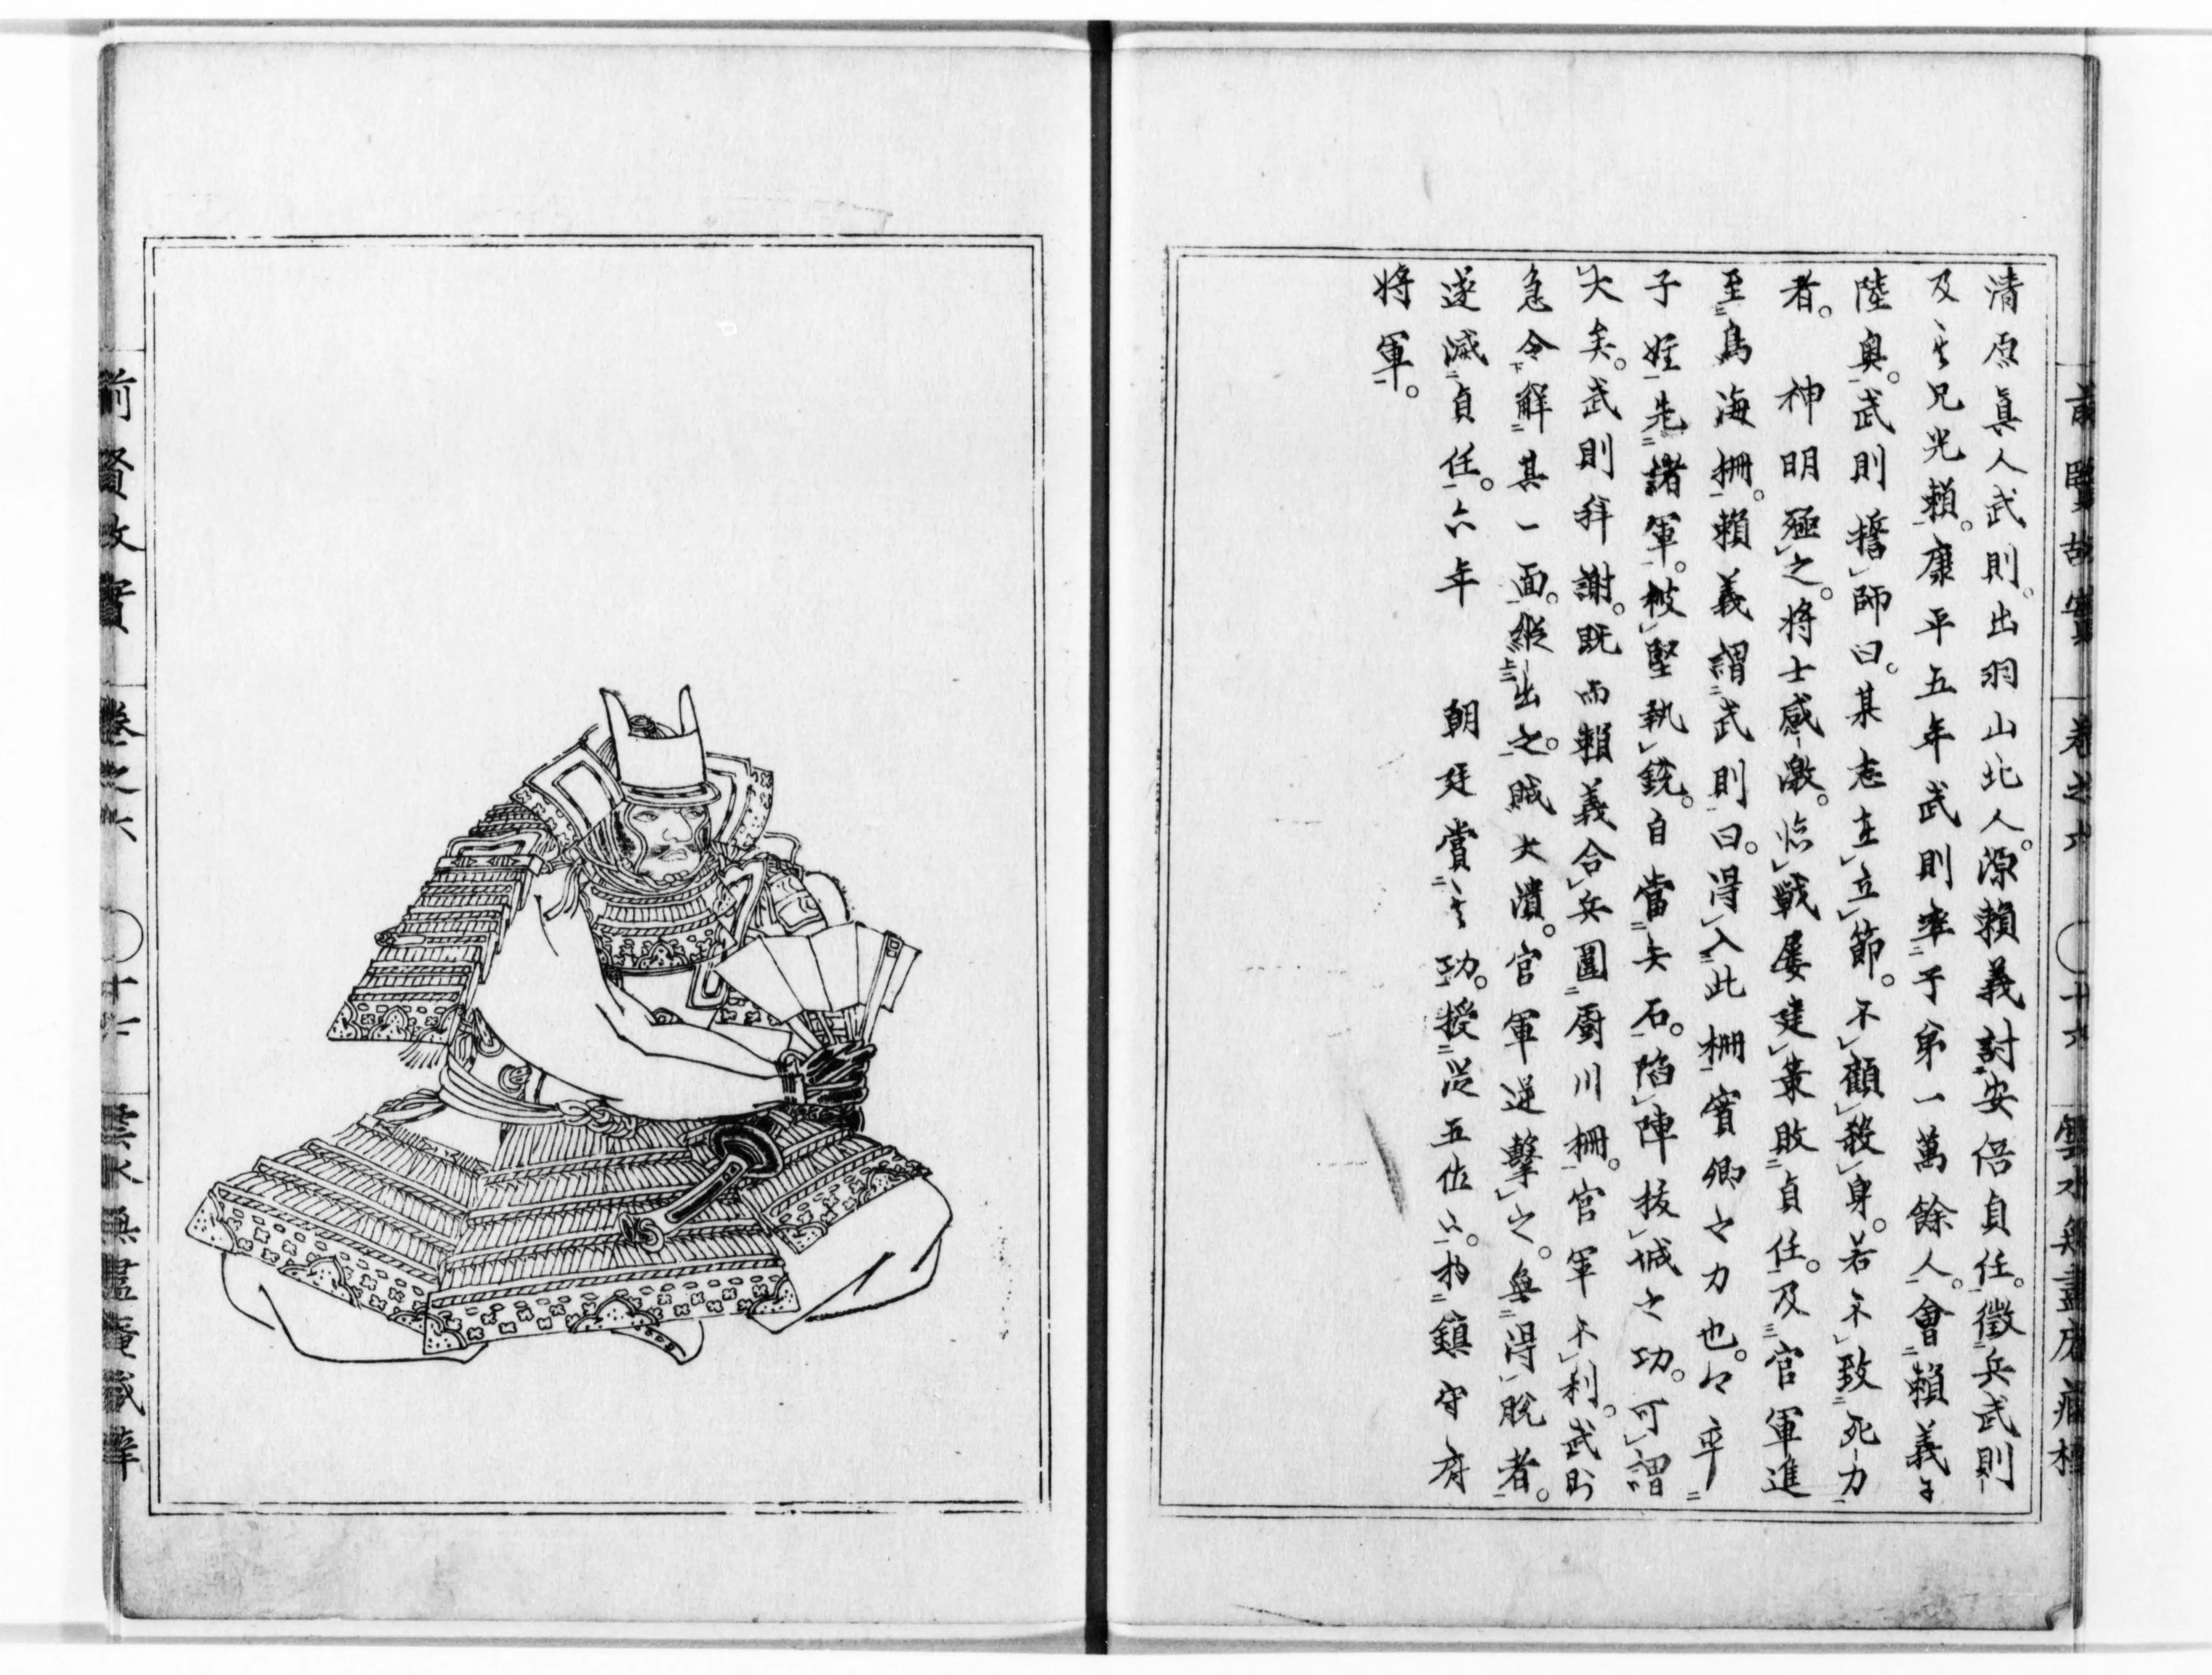 前賢故實 卷之六 ○十六 雲水無盡庵藏梓
清原眞人武則。出羽山北人。源賴義討安倍貞任。徵兵武則
及其兄光賴。康平五年武則率子弟一萬餘人。會賴義于
陸奥。武則誓師曰。某志在立節。不顧殺身。若不致死力
者。神明殛之。將士感激。臨戰屡建策敗貞任。及官軍進
至鳥海柵。賴義謂武則曰。得入此柵實卿之力也。卿率
子姪先諸軍。被堅執銳。自當矢石。陷陣拔城之功。可謂
大矣。武則拜謝。既而賴義合兵圍厨川柵。官軍不利。武則
急令解其一面。縱出之。賊大潰。官軍逆擊之。無得脫者。
遂滅貞任。六年 朝廷賞其功。授從五位上。拜鎮守府
將軍。
前賢故實 卷之六 ○十六 雲水無盡庵藏梓